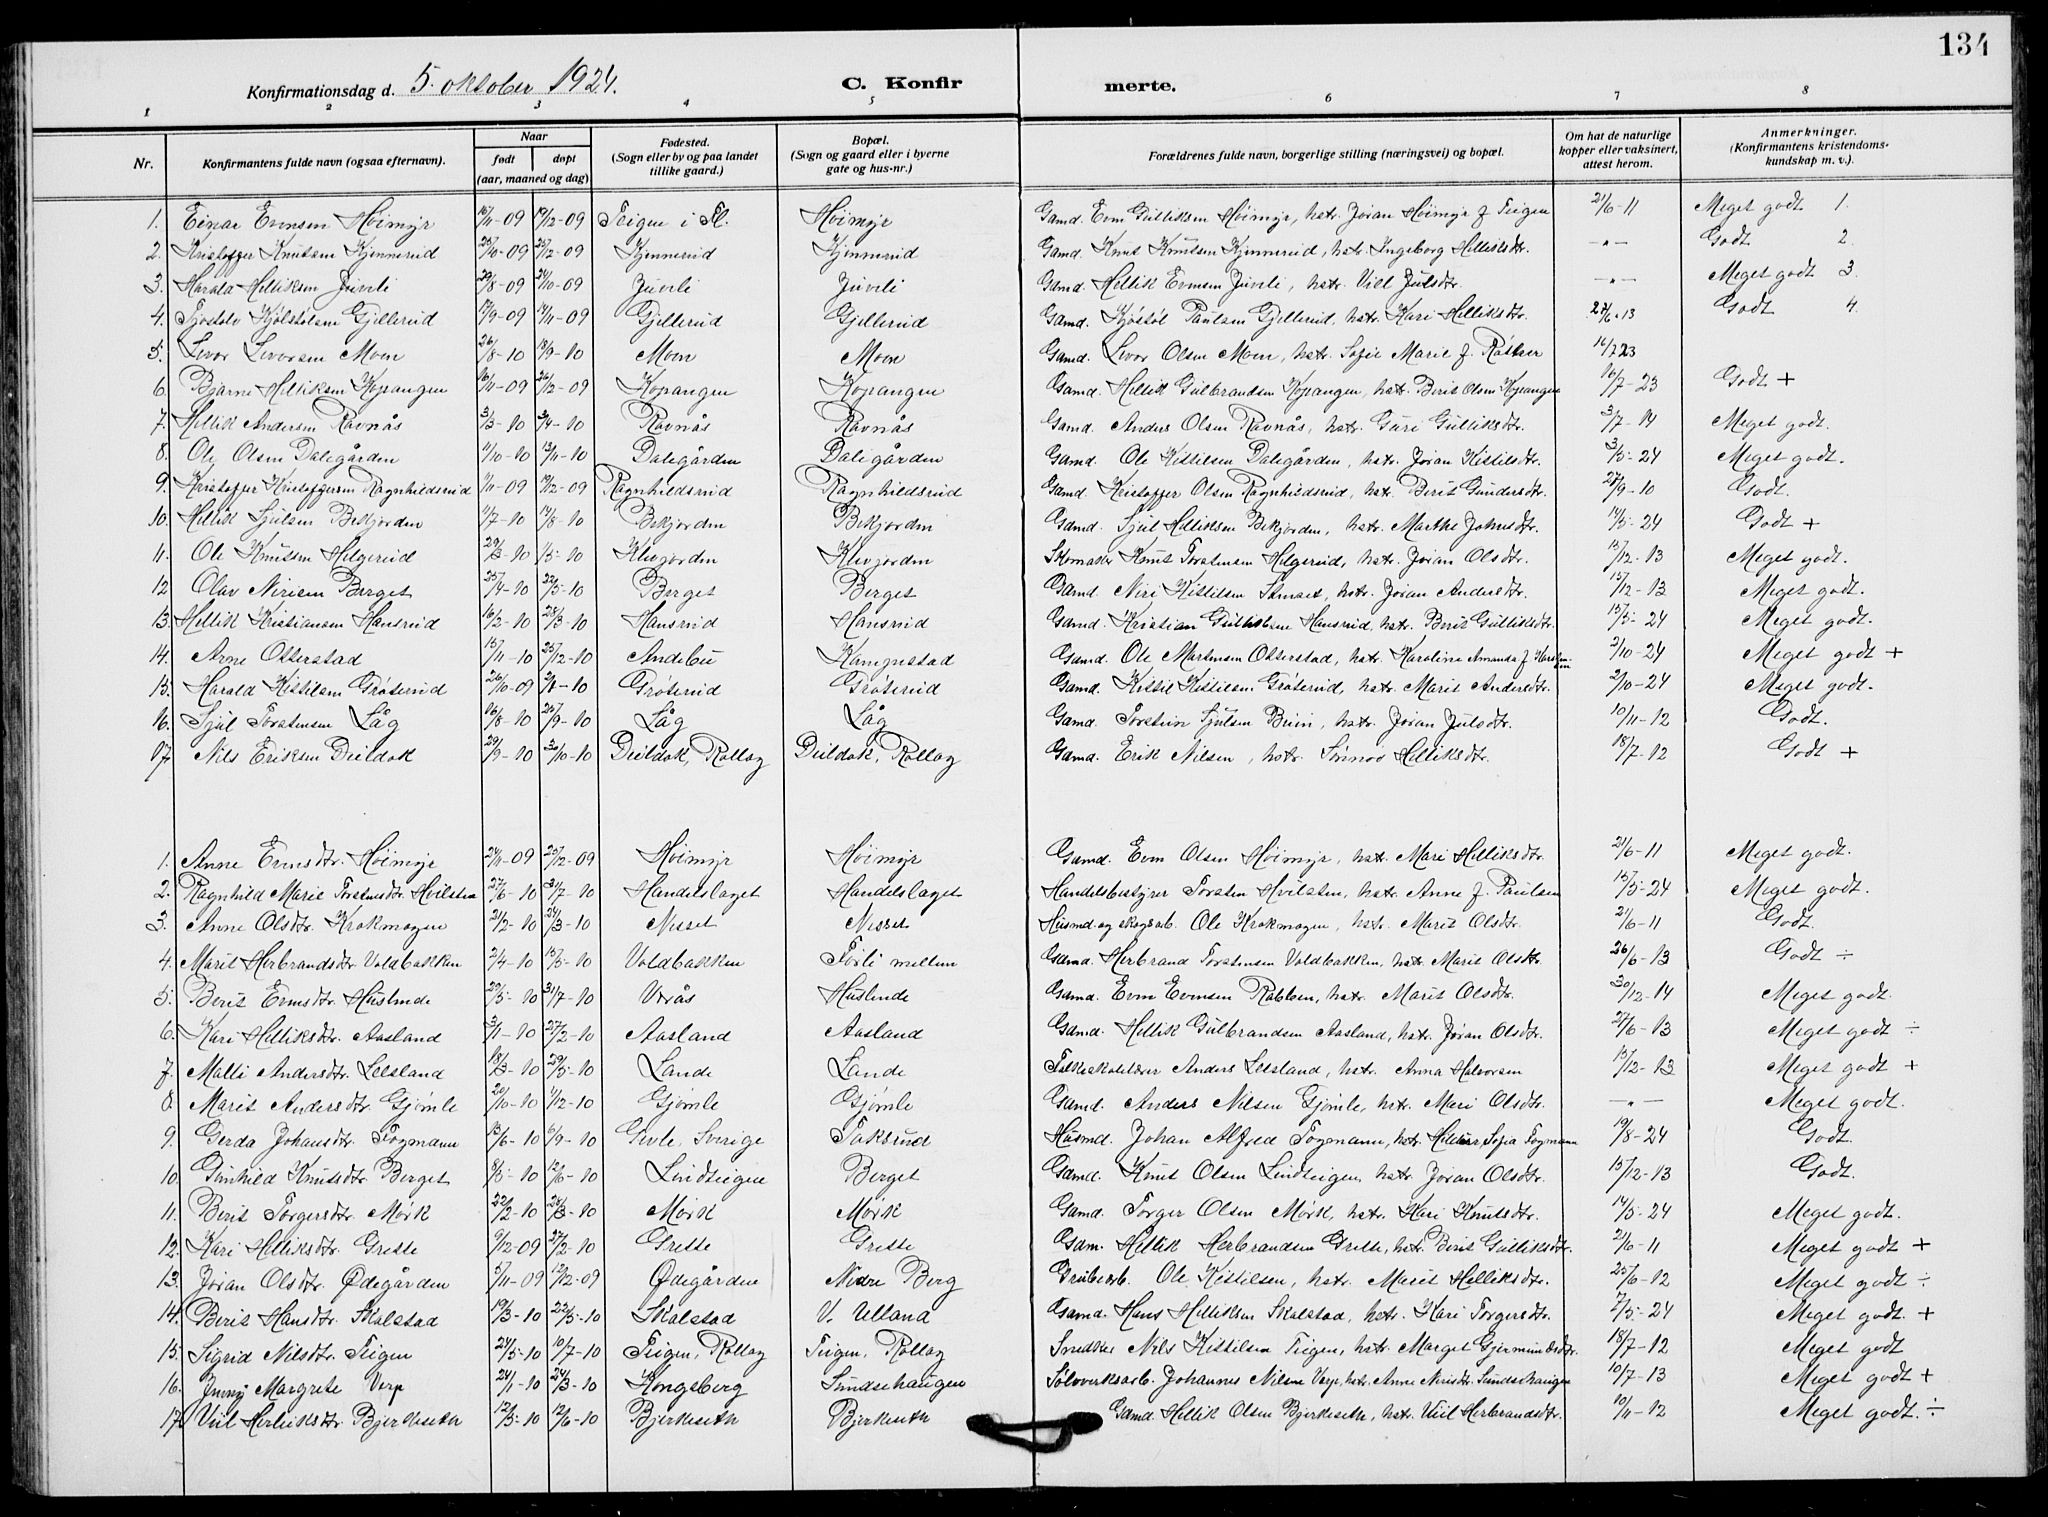 134
Konfirmationsdag d. 5. oktober 1924. C. Konfirmerte.
1 2 3 4 5 6 7 8
Nr. Konfirmantens fulde navn (ogsaa efternavn). Naar født døpt (aar, maaned og dag) Fødested. (Sogn eller by og paa landet tillike gaard.) Bopæl. (Sogn og gaard eller i byerne gate og hus-nr.) Forældrenes fulde navn, borgerlige stilling (næringsvei) og bopæl. Om hat de naturlige kopper eller vaksinert, attest herom. Anmerkninger. (Konfirmantens kristendomskundskap m. v.).
1. Einar Evensen Høimyr 15/11-09 19/12-09 Teigen i Fl. Høimyr Gamd. Even Gulliksen Høimyr, hstr. Jøran Høimyr f. Teigen 21/6-11 Meget godt 1.
2. Kristoffer Knutsen Kjennerud 25/10-09 25/12-09 Kjennerud Kjennerud Gamd. Knut Knutsen Kjennerud, hstr. Ingeborg Helliksdtr. -"- Godt 2.
3. Harald Helliksen Juveli 29/8-09 24/10-09 Juveli Juveli Gamd. Hellik Evensen Juveli, hstr. Viel Julsdtr. -"- Meget godt 3.
4. Tjostolv Kjølstolsen Gjellerud 17/9-09 14/11-09 Gjellerud Gjellerud Gamd. Kjøstøl Paulsen Gjellerud, hstr. Kari Helliksdtr. 27/6-13 Godt 4.
5. Levor Levorsen Moen 26/8-10 18/9-10 Moen Moen Gamd. Levor Olsen Moen, hstr. Sofie Marie f. 16/7 23
6. Bjarne Helliksen Kopangen 16/11-09 26/12-09 Kopangen Kopangen Gamd. Hellik Gulbrandsen Kopangen, hstr. Berit Olsen Kopangen 16/7-23 Godt +
7. Hellik Andersen Ravnås 3/3-10 3/4-10 Ravnås Ravnås Gamd. Anders Olsen Ravnås, hstr. Guri Gulliksdtr. 3/7-14 Meget godt.
8. Ole Olsen Dalegården 11/10-10 13/11-10 Dalegården Dalegården Gamd. Ole Kittilsen Dalegården, hstr. Jøran Kittilsdtr. 3/5-24 Meget godt.
9. Kristoffer Kristoffersen Ragnhildsrud 1/11-09 19/12-09 Ragnhildsrud Ragnhildsrud Gamd. Kristoffer Olsen Ragnhildsrud, hstr. Berit Gundersdtr. 28/9-10 Godt.
10. Hellik Sjulsen Bekjorden 11/7-10 14/8-10 Bekjorden Bekjorden Gamd. Sjul Helliksen Bekjorden, hstr. Marthe Johnsdtr. 14/5-24 Godt +
11. Ole Knutsen Helgerud 29/3-10 1/5-10 Klevjorden Klevjorden Skomaker Knut Torstensen Helgerud, hstr. Jøran Olsdtr. 15/12-13 Meget godt.
12 Olav Nirisen Berget 25/4-10 22/5-10 Berget Berget Gamd Niri Kittilsen, hstr. Jøran Andersdtr. 15/12-13 Meget godt.
13. Hellik Kristiansen Hansrud 16/2-10 28/3-10 Hansrud Hansrud Gamd. Kristian Gulliksen Hansrud, hstr. Berit Gulliksdtr. 15/5-24 Meget godt.
14. Arne Otterstad 15/11-10 25/12-10 Andebu Gamd. Ole Martensen Otterstad, hstr. Karoline Amanda f. 2/10-24 Meget godt +
15. Harald Kittilsen Grøterud 26/10-09 Grøterud Grøterud Gamd. Kittil Kittilsen Grøterud, hstr. Marit Andersdtr. 2/10-24 Meget godt.
16. Sjul Torstensen Låg 16/8-10 25/9-10 Låg Låg Gamd. Torstein Sjulsen, hstr. Jøran Julsdtr. 10/11-12 Godt.
17 Nils Eriksen Deildok 29/9-10 30/10-10 Deildok, Rollag Deildok, Rollag Gamd. Erik Nilsen, hstr. Sønnøv Helliksdtr. 18/7-12 Godt +
1. Anne Evensdtr. Høimyr 24/11-09 25/12-09 Høimyr Høimyr Gamd. Even Olsen Høimyr, hstr. Mari Helliksdtr. 21/6-11 Meget godt.
2. Ragnhild Marie Torstensdtr. Hvilsten 27/6-10 31/7-10 Handelslaget Handelslaget Handelsbestyrer Torsten Hvilsten, hstr. Anne f. Paulsen 15/5-24 Meget godt.
3. Anne Olsdtr. Krokmogen 21/2-10 24/3-10 Nisset Nisset Husmd. og skogsarb. Ole Krokmogen, hstr. Marit Olsdtr. 21/6-11 Godt.
4. Marit Herbrandsdtr. Voldbakken 2/4-10 15/5-10 Voldbakken Førli mellem Gamd. Herbrand Torstensen Voldbakken, hstr. Marit Olsdtr. 26/6-13 Godt ÷
5. Berit Evensdtr. Huslende 29/5-10 31/7-10 Vrås Huslende Gamd. Even Evensen Rabben, hstr. Marit Olsdtr. 30/12-14 Meget godt.
6. Kari Helliksdtr. Aasland 3/1-10 27/2-10 Aasland Aasland Gamd. Hellik Gulbrandsen Aasland, hstr. Jøran Olsdtr. 27/6-13 Meget godt ÷
7. Malli Andersdtr. Lelsland 18/3-10 29/5-10 Lande Lande Folkeskolelærer Anders Lelsland, hstr. Anna Halvorsen 15/12-13 Meget godt +
8. Marit Andersdtr. Gjømle 20/10-10 11/12-10 Gjømle Gjømle Gamd. Anders Nilsen Gjømle, hstr. Mari Olsdtr. -"- Meget godt.
9. Gerda Johansdtr. Fogmann 13/6-10 6/9-10 Gevle, Sverige Taksrud Husmd. Johan Alfred Fogmann, hstr. Sofia Fogmann 19/8-24 Godt.
10. Gunhild Knutsdtr. Berget 8/5-10 12/6-10 Lindteigen Berget Gamd. Knut Olsen Lindteigen, hstr. Jøran Olsdtr. 15/12-13 Godt.
11. Berit Torgersdtr. Mørk 22/2-10 28/3-10 Mørk Mørk Gamd. Torger Olsen Mørk, hstr. Kari Knutsdtr. 14/5-24 Meget godt.
12. Kari Helliksdtr. Grette 9/12-09 27/2-10 Grette Grette Gam. Hellik Herbrandsen Grette, hstr. Berit Gulliksdtr. 21/6-11 Meget godt +
13. Jøran Olsdtr. Ødegården 5/11-09 12/12-09 Ødegården Nedre Berg Grubearb. Ole Kittilsen, hstr. Marit Helliksdtr. 25/6-12 Meget godt ÷
14. Berit Hansdtr. Skalstad 19/3-10 22/5-10 Skalstad V. Ulland Gamd. Hans Helliksen Skalstad, hstr. Kari Torgersdtr. 7/5-24 Meget godt. +
15. Sigrid Nilsdtr. Teigen 24/5-10 10/7-10 Teigen, Rollag Teigen, Rollag Snedker Nils Kittilsen Teigen, hstr. Marget Gjermundsdtr. 18/7-12 Meget godt
16. Jenny Margrete Verp 24/1-10 24/3-10 Kongsberg Sundsehaugen Sølvverksarb. Johannes Nilsen Verp, hstr. Anne Nirisdtr. Sundsehaugen 10/7-13 Meget godt +
17. Viel Helleiksdtr. Bjerkeseth 12/5-10 12/6-10 Bjerkeseth Bjerkeseth Gamd. Hellik Olsen Bjerkeseth, hstr. Viel Herbrandsdtr. 10/11-12 Meget godt. ÷